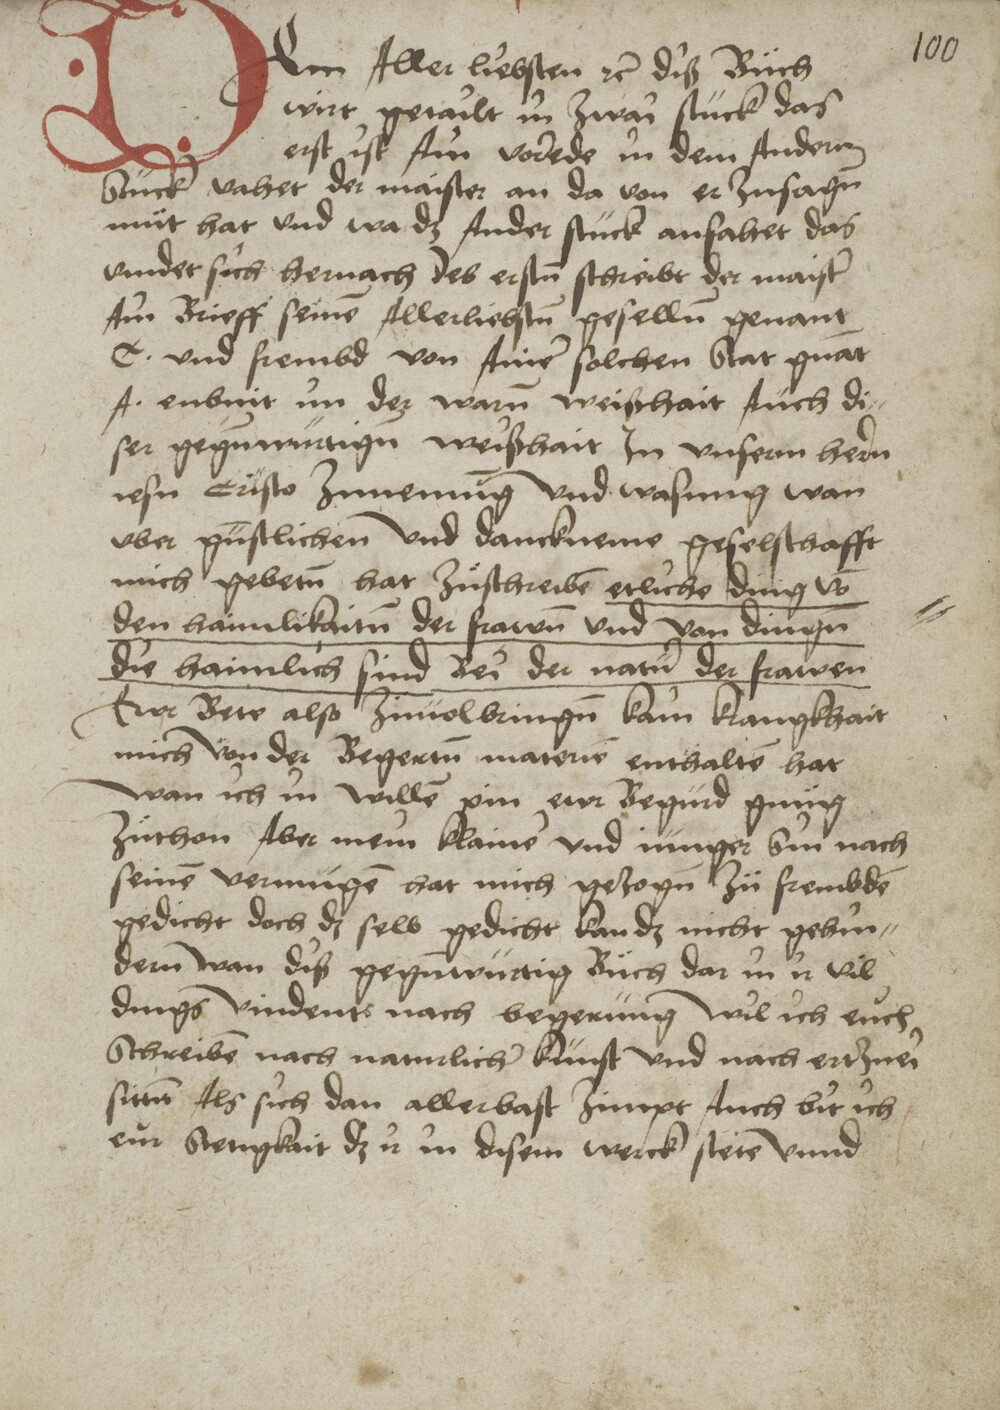 100
Dem Aller liebsten rc̄ diß Bůch
wirt getailt in zwai stuck das
erst ist Ain vorrede in dem Andern
Stuck vahet der maister an da von er zusagn̄
můt hat vnd wa dz Ander stuck anfahet das
vindet sich hernach Des erstn̄ schreibt der maister
Ain Brieff seinē Allerliebstn̄ geselln̄ genant
C. vnd frembd von Ainer solchen Stat gnāt
A. enbiut im der warn̄ weißhait Auch di-
ser gegn̄wurtign̄ weißhait In vnserm hern
iesu Cristo Zunemūg vnd wasung wan
vber gūstlichen vnd danckneme geselschafft
mich gebetn̄ hat zůschreibē etliche ding vō
den haimlikaitn̄ der frawn̄ vnd von dingn̄
die haimlich sind Bei der natur der frawen
Ewr Bete also zuuolbringn̄ kain krangkhait
mich von der Begertn̄ materiē enthaltē hat
Wan ich in willē pin ewr Begird gnůg
zůthon Aber mein klainer vnd iunger Sin nach
seinē vermugē hat mich gezogn̄ zů frembdē
gedicht doch dz selb gedicht kan dz nicht gehin-
dern̄ wan diß gegn̄wurtig Bůch dar in ir vil
dings vindent nach begerung wil ich euch
Schreibē nach naturlicher kunst vnd nach ertznei
sittn̄ Als sich dan allerbast zimpt Auch bit ich
eur Stetigkait dz ir in disem werck stete vnnd